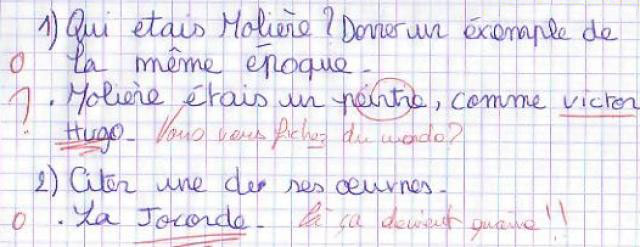 1) Qui etais Molière ? Donner un éxemple de
0 la même époque.
? . Molière étais un peintre, comme victor
Hugo. Vous vous fichez du monde?
2) Citer une des ses oeuvres.
0 . La Joconde. Là ça devient grave !!